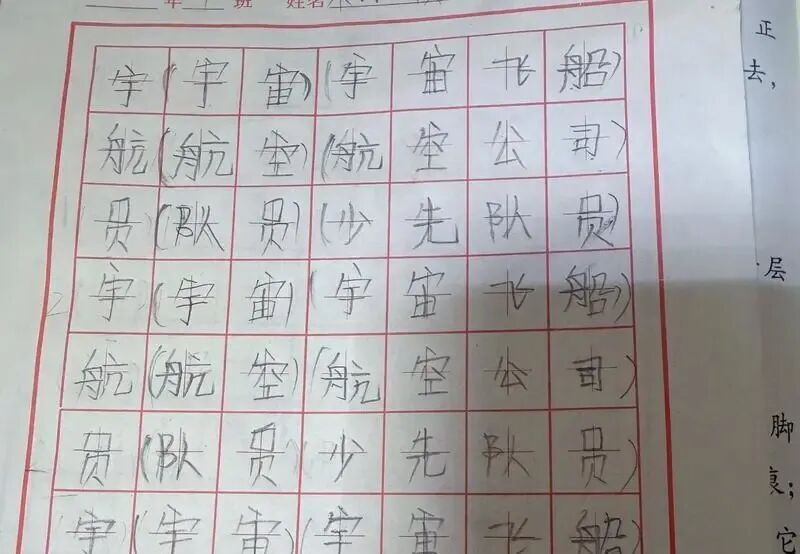 年 班 姓名
宇(宇宙)(宇宙飞船)
航(航空)(航空公司)
员(队员)(少先队员)
宇(宇宙)(宇宙飞船)
航(航空)(航空公司)
员(队员)(少先队员)
宇(宇宙)(宇宙飞船)
正
去，
层
脚
哀；
它